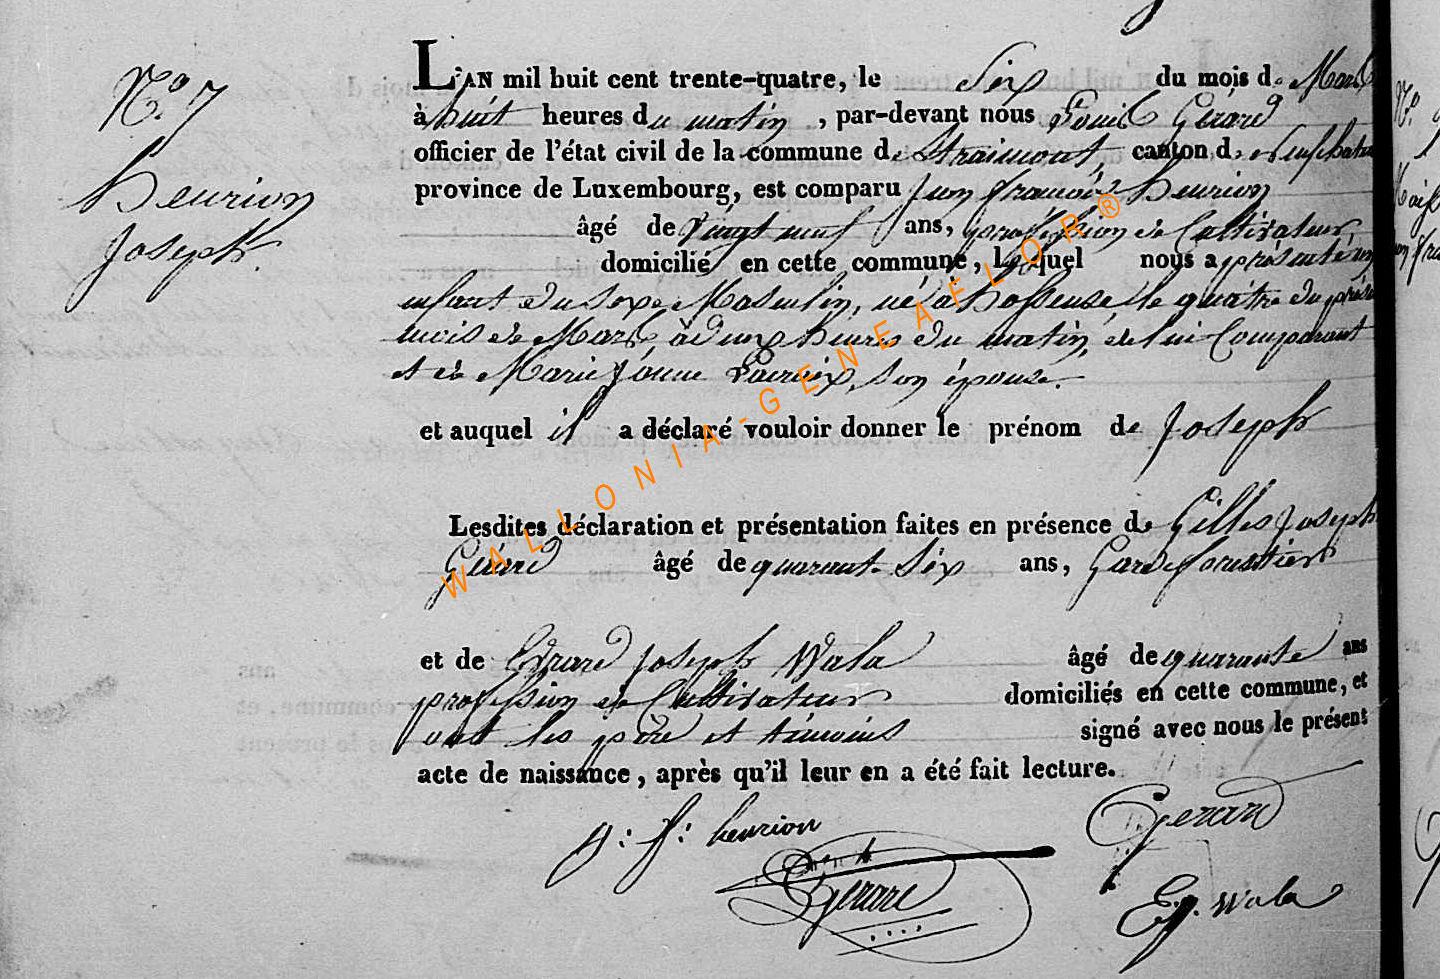 N.° 7
henrion
Joseph.
L'AN mil huit cent trente-quatre, le Six du mois de Mars
à huit heures du matin, par-devant nous Louis Gérard
officier de l'état civil de la commune de Straimont, canton de Neufchateau
province de Luxembourg, est comparu Jean françois henrion
âgé de Vingt neuf ans, profession de Cultivateur
domicilié en cette commune, Lequel nous a présenté un
enfant du sexe Masculin, né à hosseuse, le quatre du présent
mois de Mars à deux heures du matin, de lui Comparant
et de Marie Jeanne Lacroix, son épouse.
et auquel il a déclaré vouloir donner le prénom de Joseph
Lesdites déclaration et présentation faites en présence de Gilles Joseph
Gérard âgé de quarante Six ans, Garde forestier
et de Evrard Joseph Wala âgé de quarante ans
profession de Cultivateur domiciliés en cette commune, et
ont les père et témoins signé avec nous le présent
acte de naissance, après qu'il leur en a été fait lecture.
j: f: henrion
Gerard
Gerard
E.j. Wala
WALLONIA-GENEAFLOR®
N.°